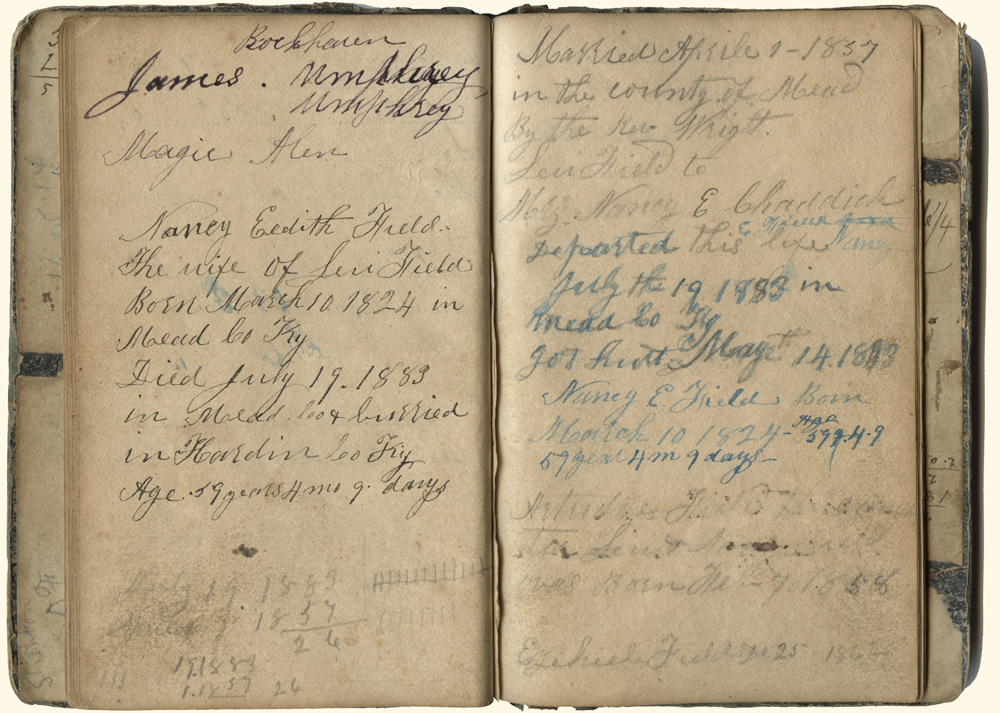 James . Umphrey
Umphrey
Magic Alen
Nancy Eedith Field.
The wife of Levi Field
Born March 10 1824 in
Mead Co Ky
Died July 19. 1883
in Mead Co & burried
in Hardin Co Ky
Age. 59 years 4 mo 9. days
July 19 1883
18 57
2 6
19.1883
1.1857 26
Married Aprile 1 - 1857
in the county of Mead
By the Rev Wright.
Levi Field to
Nancy E Chaddick
E Field
Departed this life Nancy
July the 19 1883 in
mead Co Ky
got hurt May 14. 1883
Nancy E. Field Born
March 10 1824 - Age
59 y. 4. 9
59 year 4 m 9 days
Field
Levi &
was Born Feb 9. 1858
Ezekiel Field 25